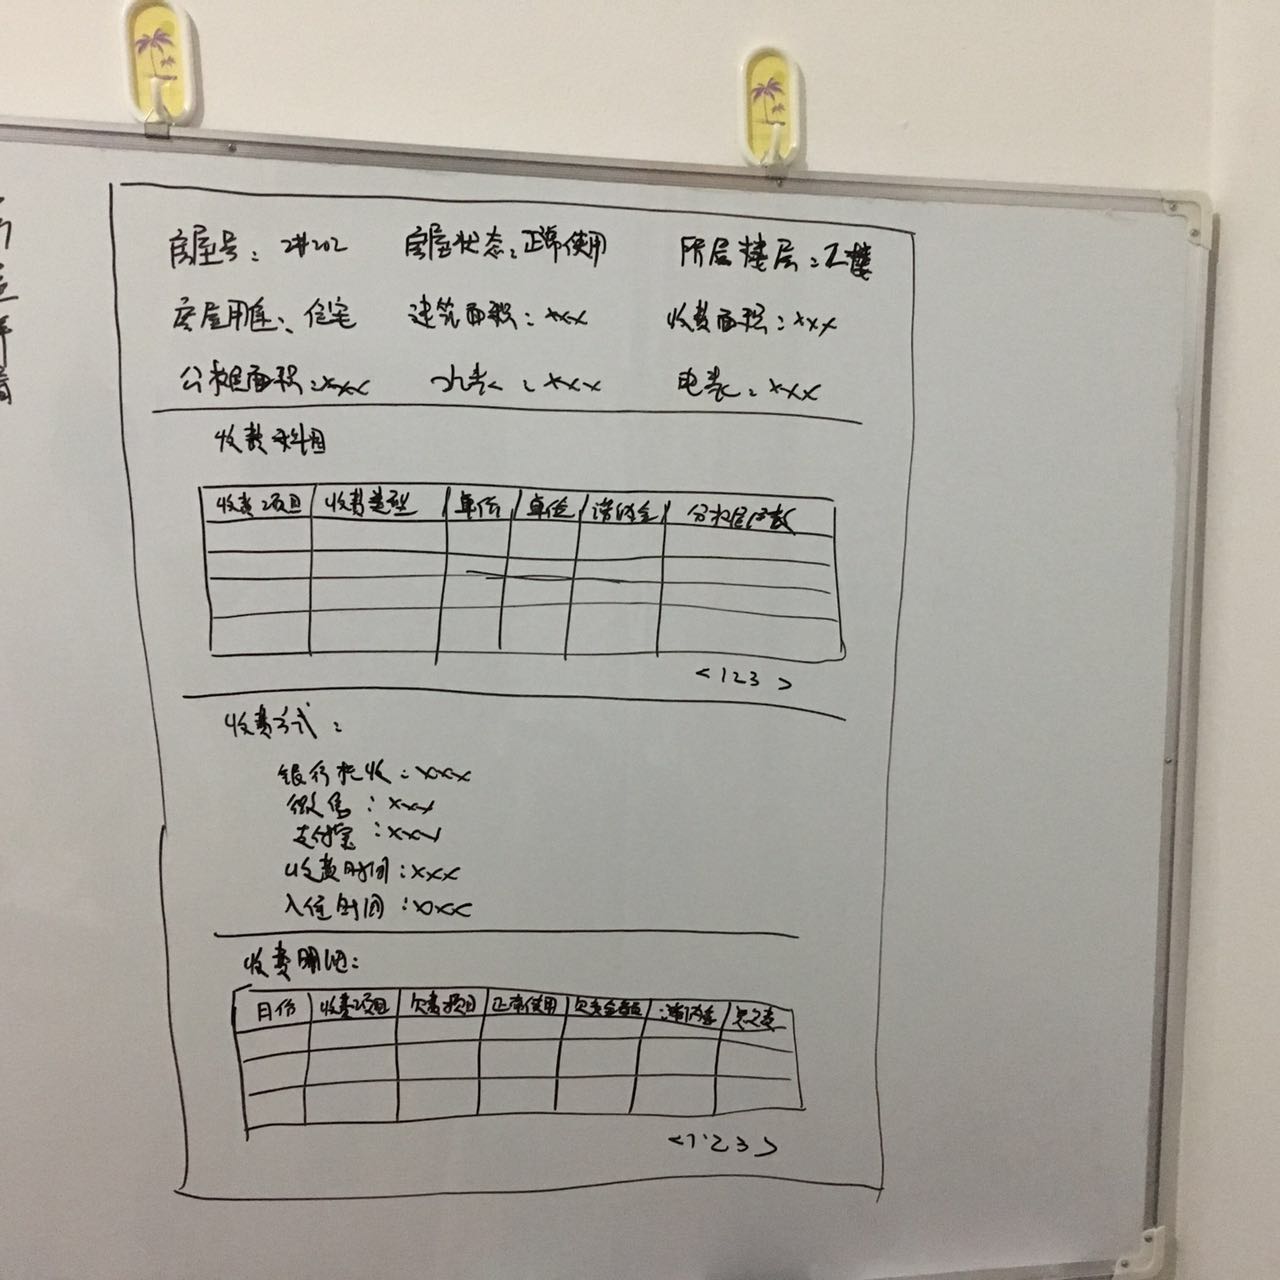 房屋号：2#202 房屋状态：正常使用 所属楼层：2楼
房屋用途：住宅 建筑面积：xxx 收费面积：xxx
公摊面积：xxx 水表：xxx 电表：xxx
收费科目
收费项目 收费类型 单价 单位 滞纳金 分摊户数
<123>
收费方式：
银行托收：xxx
微信：xxx
支付宝：xxx
收费时间：xxx
入住时间：xxx
收费明细：
月份 收费项目 欠费项目 正常使用 欠费金额 滞纳金 总欠费
<123>